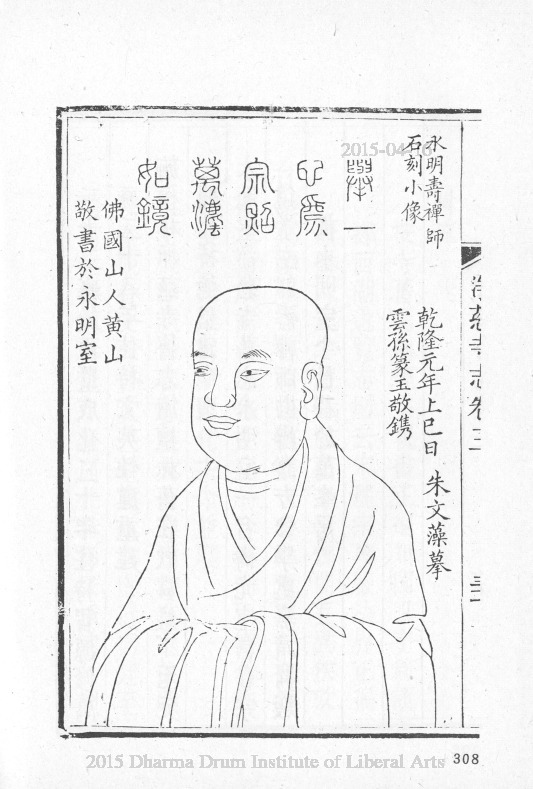 淨慈寺志卷三
永明壽禪師
石刻小像
乾隆元年上巳日 朱文藻摹
雲孫篆玉敬鐫
舉一
心爲
宗照
萬法
如鏡
佛國山人黄山
敬書於永明室
2015 Dharma Drum Institute of Liberal Arts
308